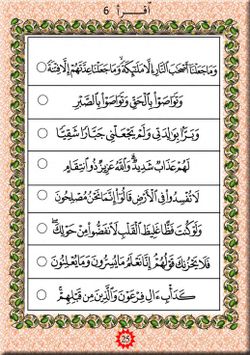 أقرأ 6
وَمَا جَعَلْنَا أَصْحَٰبَ ٱلنَّارِ إِلَّا مَلَٰٓئِكَةً وَمَا جَعَلْنَا عِدَّتَهُمْ إِلَّا فِتْنَةً
وَتَوَاصَوْا۟ بِٱلْحَقِّ وَتَوَاصَوْا۟ بِٱلصَّبْرِ
وَبَرًّۢا بِوَٰلِدَتِى وَلَمْ يَجْعَلْنِى جَبَّارًا شَقِيًّا
لَهُمْ عَذَابٌ شَدِيدٌ ۗ وَٱللَّهُ عَزِيزٌ ذُو ٱنتِقَامٍ
لَا تُفْسِدُوا۟ فِى ٱلْأَرْضِ قَالُوٓا۟ إِنَّمَا نَحْنُ مُصْلِحُونَ
وَلَوْ كُنتَ فَظًّا غَلِيظَ ٱلْقَلْبِ لَٱنفَضُّوا۟ مِنْ حَوْلِكَ ۖ
فَلَا يَحْزُنكَ قَوْلُهُمْ إِنَّا نَعْلَمُ مَا يُسِرُّونَ وَمَا يُعْلِنُونَ
كَدَأْبِ ءَالِ فِرْعَوْنَ وَٱلَّذِينَ مِن قَبْلِهِمْ ۚ
25